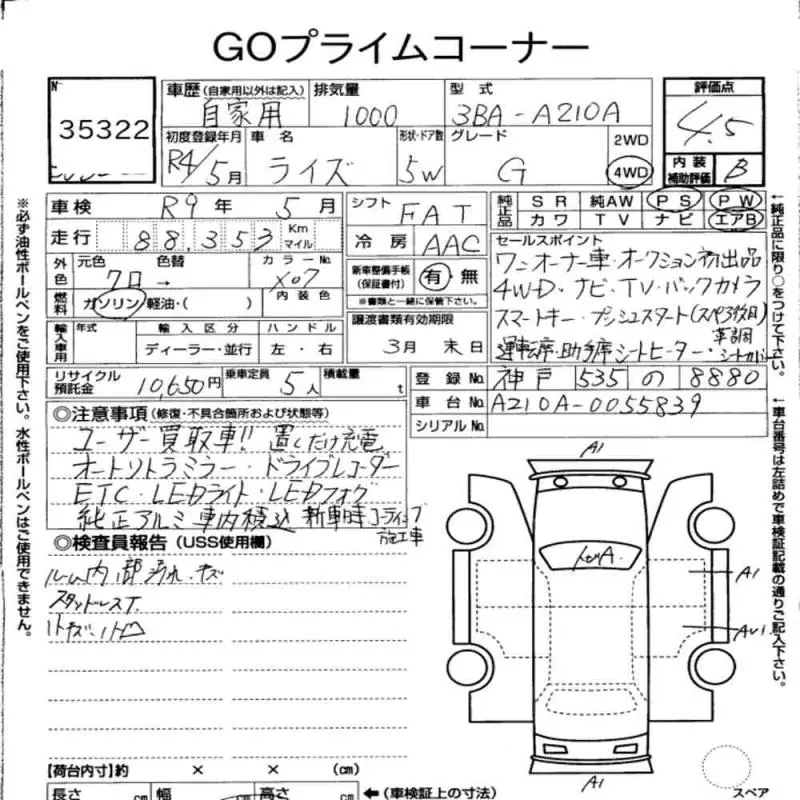 GOプライムコーナー
No
35322
車歴(自家用以外は記入)
自家用
排気量
1000
型式
3BA-A210A
評価点
4.5
初度登録年月
R4/5月
車名
ライズ
形状・ドア数
5W
グレード
G
2WD
4WD
内装補助評価
B
車検 R9年 5月
走行 88,353 Km マイル
シフト FAT
冷房 AAC
純正品 SR 純AW PS PW
カワ TV ナビ エアB
外色 元色 色替 カラーNo
クロ → X07
燃料 ガソリン・軽油・( ) 内装色
新車整備手帳(保証書付) 有 無
※書類と一緒に保管下さい。
セールスポイント
ワンオーナー車・オークション初出品
4WD・ナビ・TV・バックカメラ
スマートキー・プッシュスタート(スペア3枚目)
運転席・助手席シートヒーター・革調シートカバー
輸入車用 年式 輸入区分 ハンドル
ディーラー・並行 左・右
譲渡書類有効期限
3月 末日
リサイクル預託金 10,650円 乗車定員 5人 積載量 t
登録No. 神戸 535 の 8880
車台No. A210A-0055839
シリアルNo.
◎注意事項(修復・不具合箇所および状態等)
ユーザー買取車!! 置くだけ充電
オートリトラミラー・ドライブレコーダー
ETC・LEDライト・LEDフォグ
純正アルミ車内積込 新車時コーティング施工車
◎検査員報告(USS使用欄)
ルーム内部汚れ・キズ
スタッドレスT
A1
A1
A1
【荷台内寸】約 × × (cm)
長さ cm 幅 cm 高さ cm ←(車検証上の寸法)
スペア
※必ず油性ボールペンをご使用下さい。水性ボールペンはご使用できません。
←純正品に限り○をつけて下さい。
←車台番号は左詰めで車検証記載の通りご記入下さい。